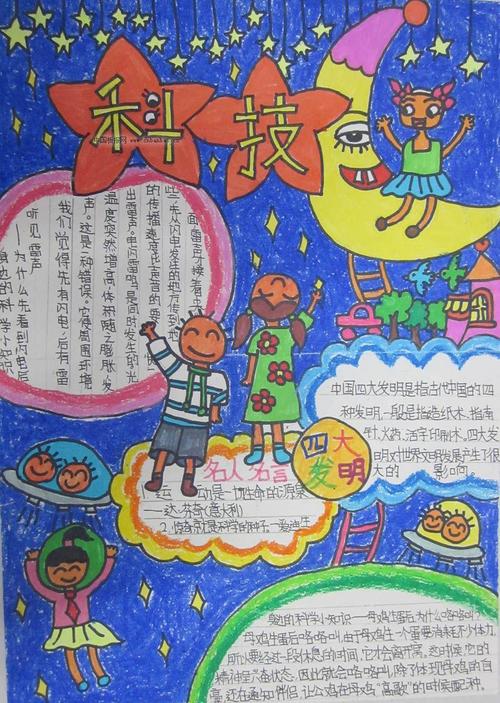 科技
身边的科学小知识
——为什么先看到闪电后
听见雷声
我们觉得先有闪电,后有雷
声。这是一种错误。它使周围环境
温度突然增高,体积随之膨胀,发
出雷声。电闪雷鸣是同时发生的,光
的传播速度比声音的要快
些,先从闪电发生的地方传到地
面,雷声才接着
中国四大发明是指古代中国的四
种发明,一段是指造纸术、指南
针、火药、活字印刷术,四大发
明对世界文明发展产生了很
大的 影响。
四大
发明
名人名言
1.运 动是一切生命的源泉
——达.芬奇(意大利)
2.惊奇就是科学的种子——爱迪生
身边的科学小知识——母鸡生蛋后为什么咯咯叫?
母鸡生蛋后咯咯叫,由于母鸡生一个蛋要消耗不少体力
所以要经过一段休息的时间,它才会离开窝。这时候,它的
精神呈亢奋状态,因此就会咯咯叫,除了体现母鸡的自
豪,还在通知伴侣,让公鸡在母鸡“高歌”的时候配种。